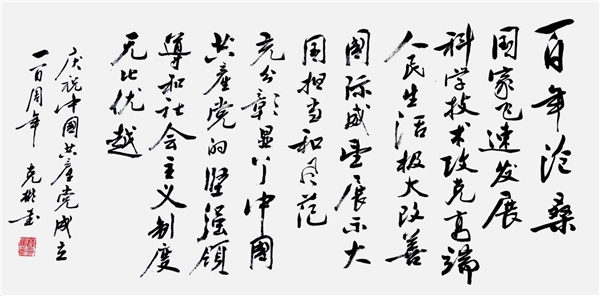 百年沧桑
国家飞速发展
科学技术攻克高端
人民生活极大改善
国际威望展示大
国担当和风范
充分彰显了中国
共产党的坚强领
导和社会主义制度
无比优越
庆祝中国共产党成立
一百周年